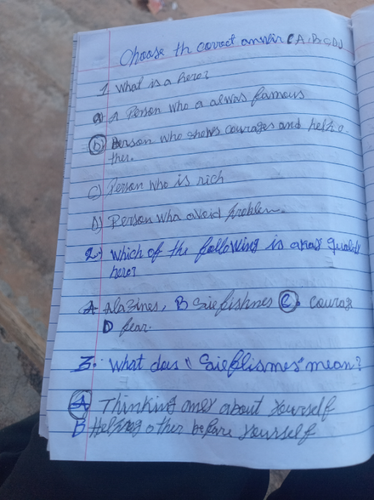 Choose th correct answer (A.B.C.D)
1. What is a hero?
a) A Person who a alwas famous
(b) Person who shows courages and help o
ther.
C) Person who is rich
D) Person who avoid problem.
2) Which of the following is a quality
hero?
A lazines, B Sielfishnes (C). courag
D fear.
3. What does "Sielflismes" mean?
(A) Thinking only about yourself
B Helping other before yourself